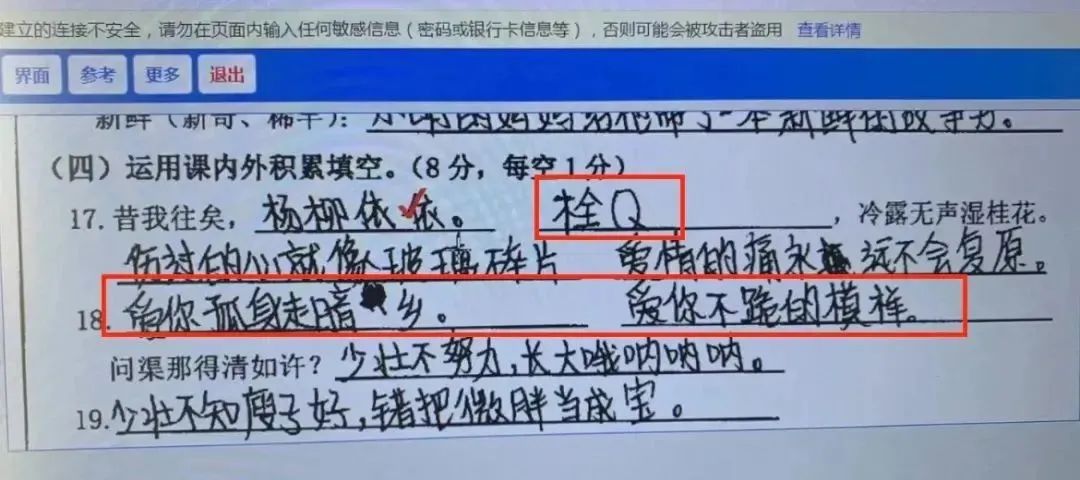 建立的连接不安全，请勿在页面内输入任何敏感信息（密码或银行卡信息等），否则可能会被攻击者盗用 查看详情
界面 参考 更多 退出
新鲜（新奇、稀罕）：小明的妈妈给他带了一本新鲜的故事书。
（四）运用课内外积累填空。（8分，每空1分）
17. 昔我往矣，杨柳依依。 栓Q，冷露无声湿桂花。
伤过的心就像玻璃碎片 爱情的痛永远不会复原。
18. 爱你孤身走暗乡。 爱你不跪的模样。
问渠那得清如许？少壮不努力，长大哦呐呐呐。
19. 少壮不知瘦子好，错把微胖当成宝。